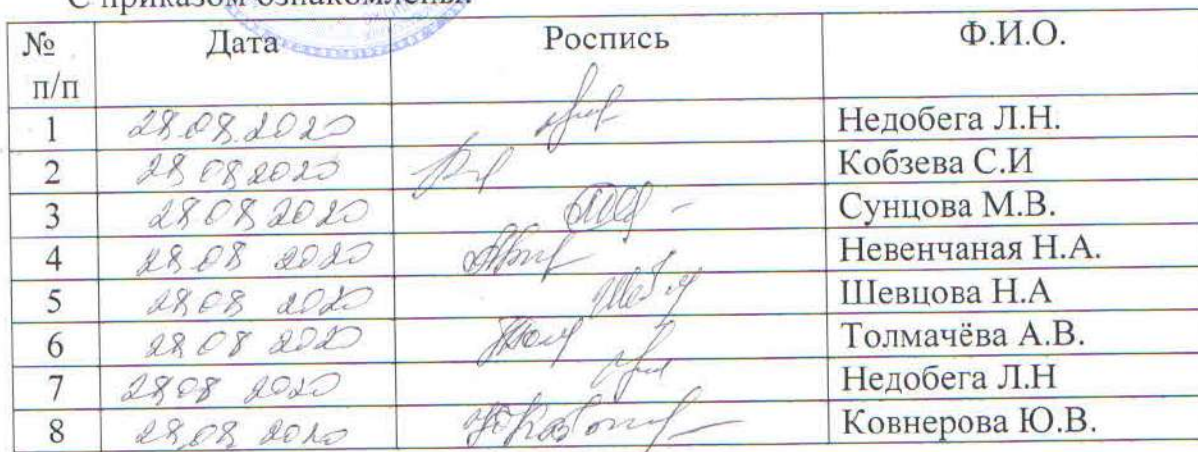 С приказом ознакомлены.
№ п/п Дата Роспись Ф.И.О.
1 28.08.2020 Недобега Л.Н.
2 28 08 2020 Кобзева С.И
3 28 08 2020 Сунцова М.В.
4 28.08 2020 Невенчаная Н.А.
5 28 08 2020 Шевцова Н.А
6 28 08 2020 Толмачёва А.В.
7 28 08 2020 Недобега Л.Н
8 28 08 2020 Ковнерова Ю.В.